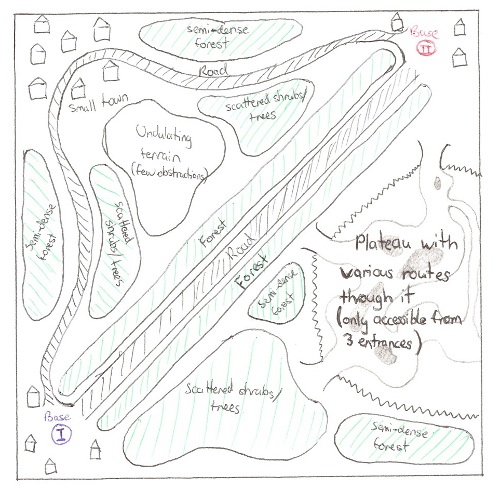 semi-dense
forest
Base
II
Road
small town
scattered shrubs/
trees
Undulating
terrain
(few obstructions)
semi-dense
forest
scattered
shrubs/trees
Forest
Road
Forest
semi-dense
forest
Plateau with
various routes
through it
(only accessible from
3 entrances)
Scattered shrubs/
trees
Base
I
semi-dense
forest